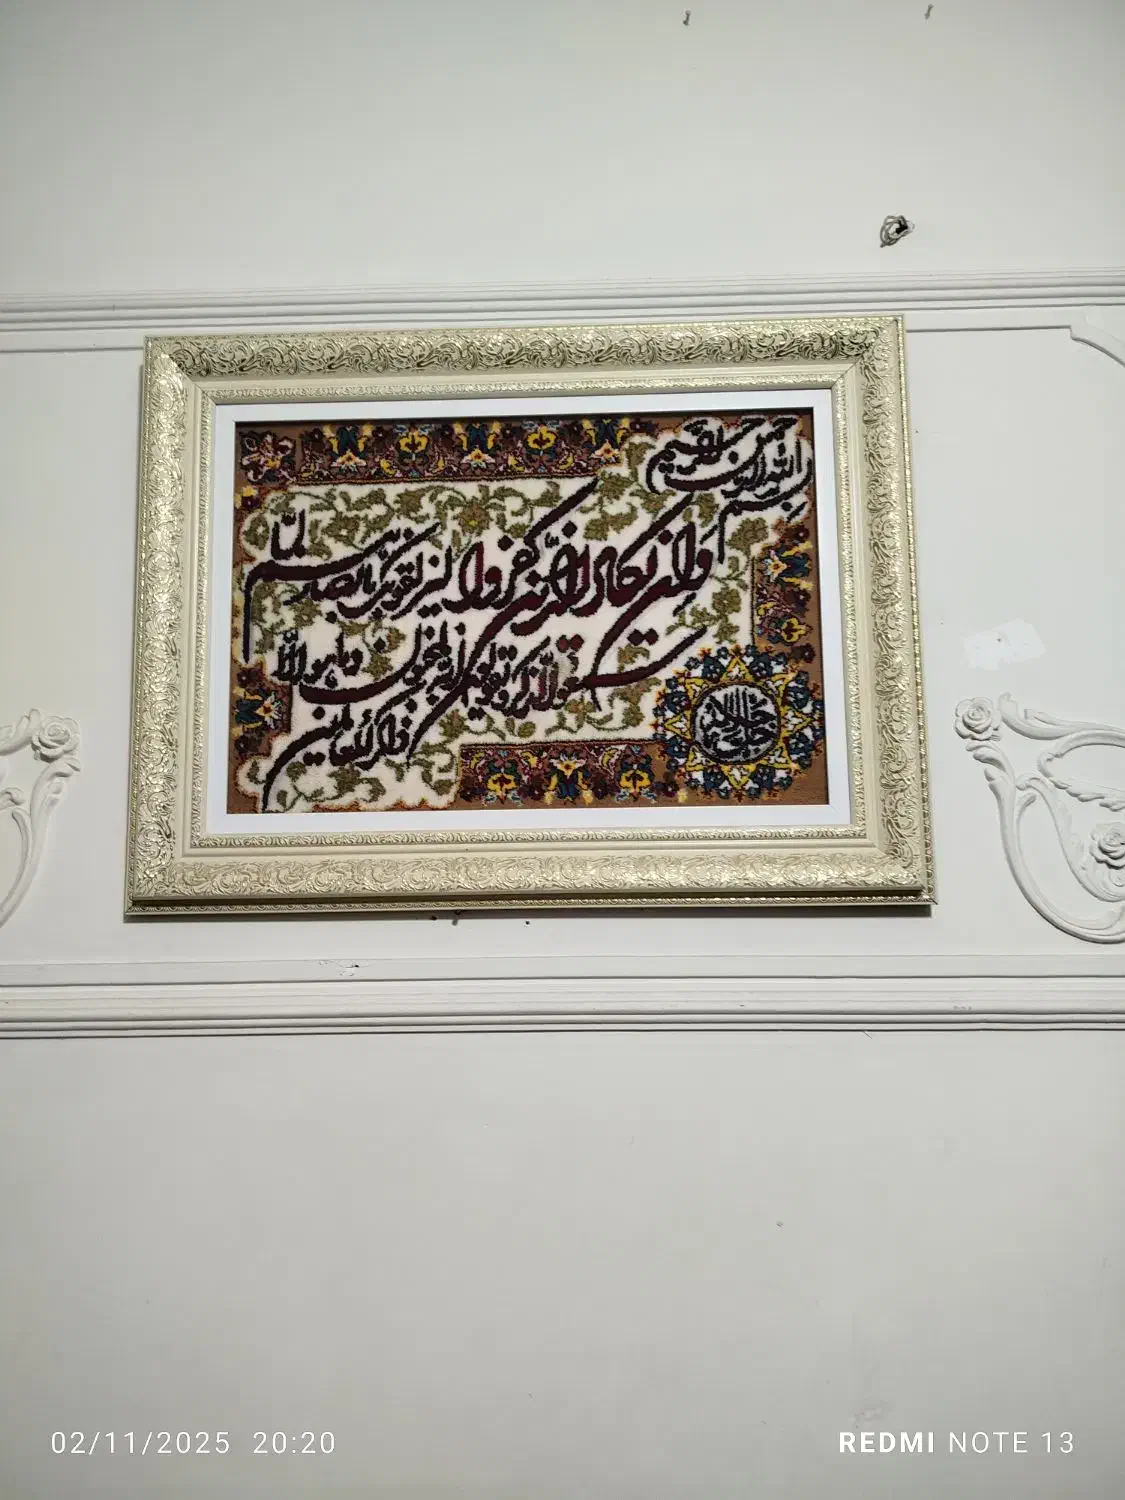 بسم الله الرحمن الرحیم
وان یکاد الذین کفروا لیزلقونک بابصارهم لما
سمعوا الذکر و یقولون انه لمجنون و ما هو الا
ذکر للعالمین
02/11/2025 20:20
REDMI NOTE 13